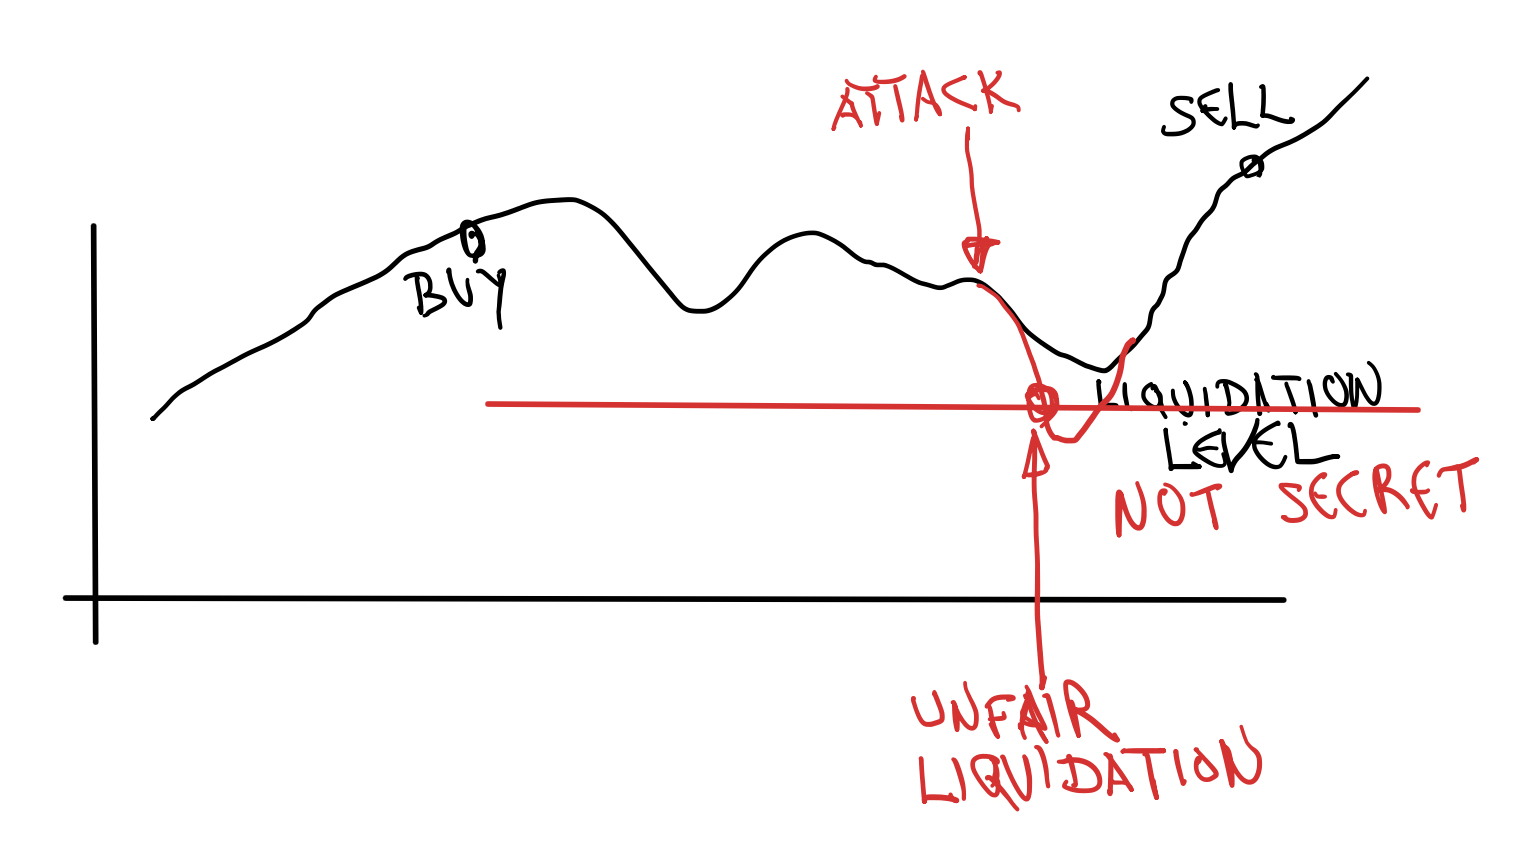 ATTACK
SELL
BUY
LIQUIDATION
LEVEL
NOT SECRET
UNFAIR
LIQUIDATION